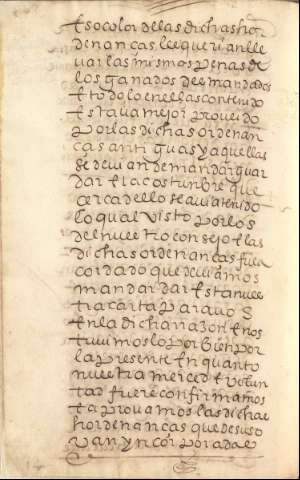 e so color de las dichas hor
denanças le querian lle
uar las mismas penas de
los ganados demandados
e todo lo en ellas contenido
estaua mejor proueido
por las dichas ordenan
ças antiguas y aquellas
se deuian de mandar guar
dar e la costunbre que
açerca dello se auia tenido
lo qual visto por los
del nuestro consejo e las
dichas ordenanças fue a
cordado que deuiamos
mandar dar esta nues
tra carta para uos
en la dicha razon e nos
tuuimoslo por bien por
la presente en quanto
nuestra merced e volun
tad fuere confirmamos
e aprouamos las dichas
hordenanças que de suso
van yncorporadas